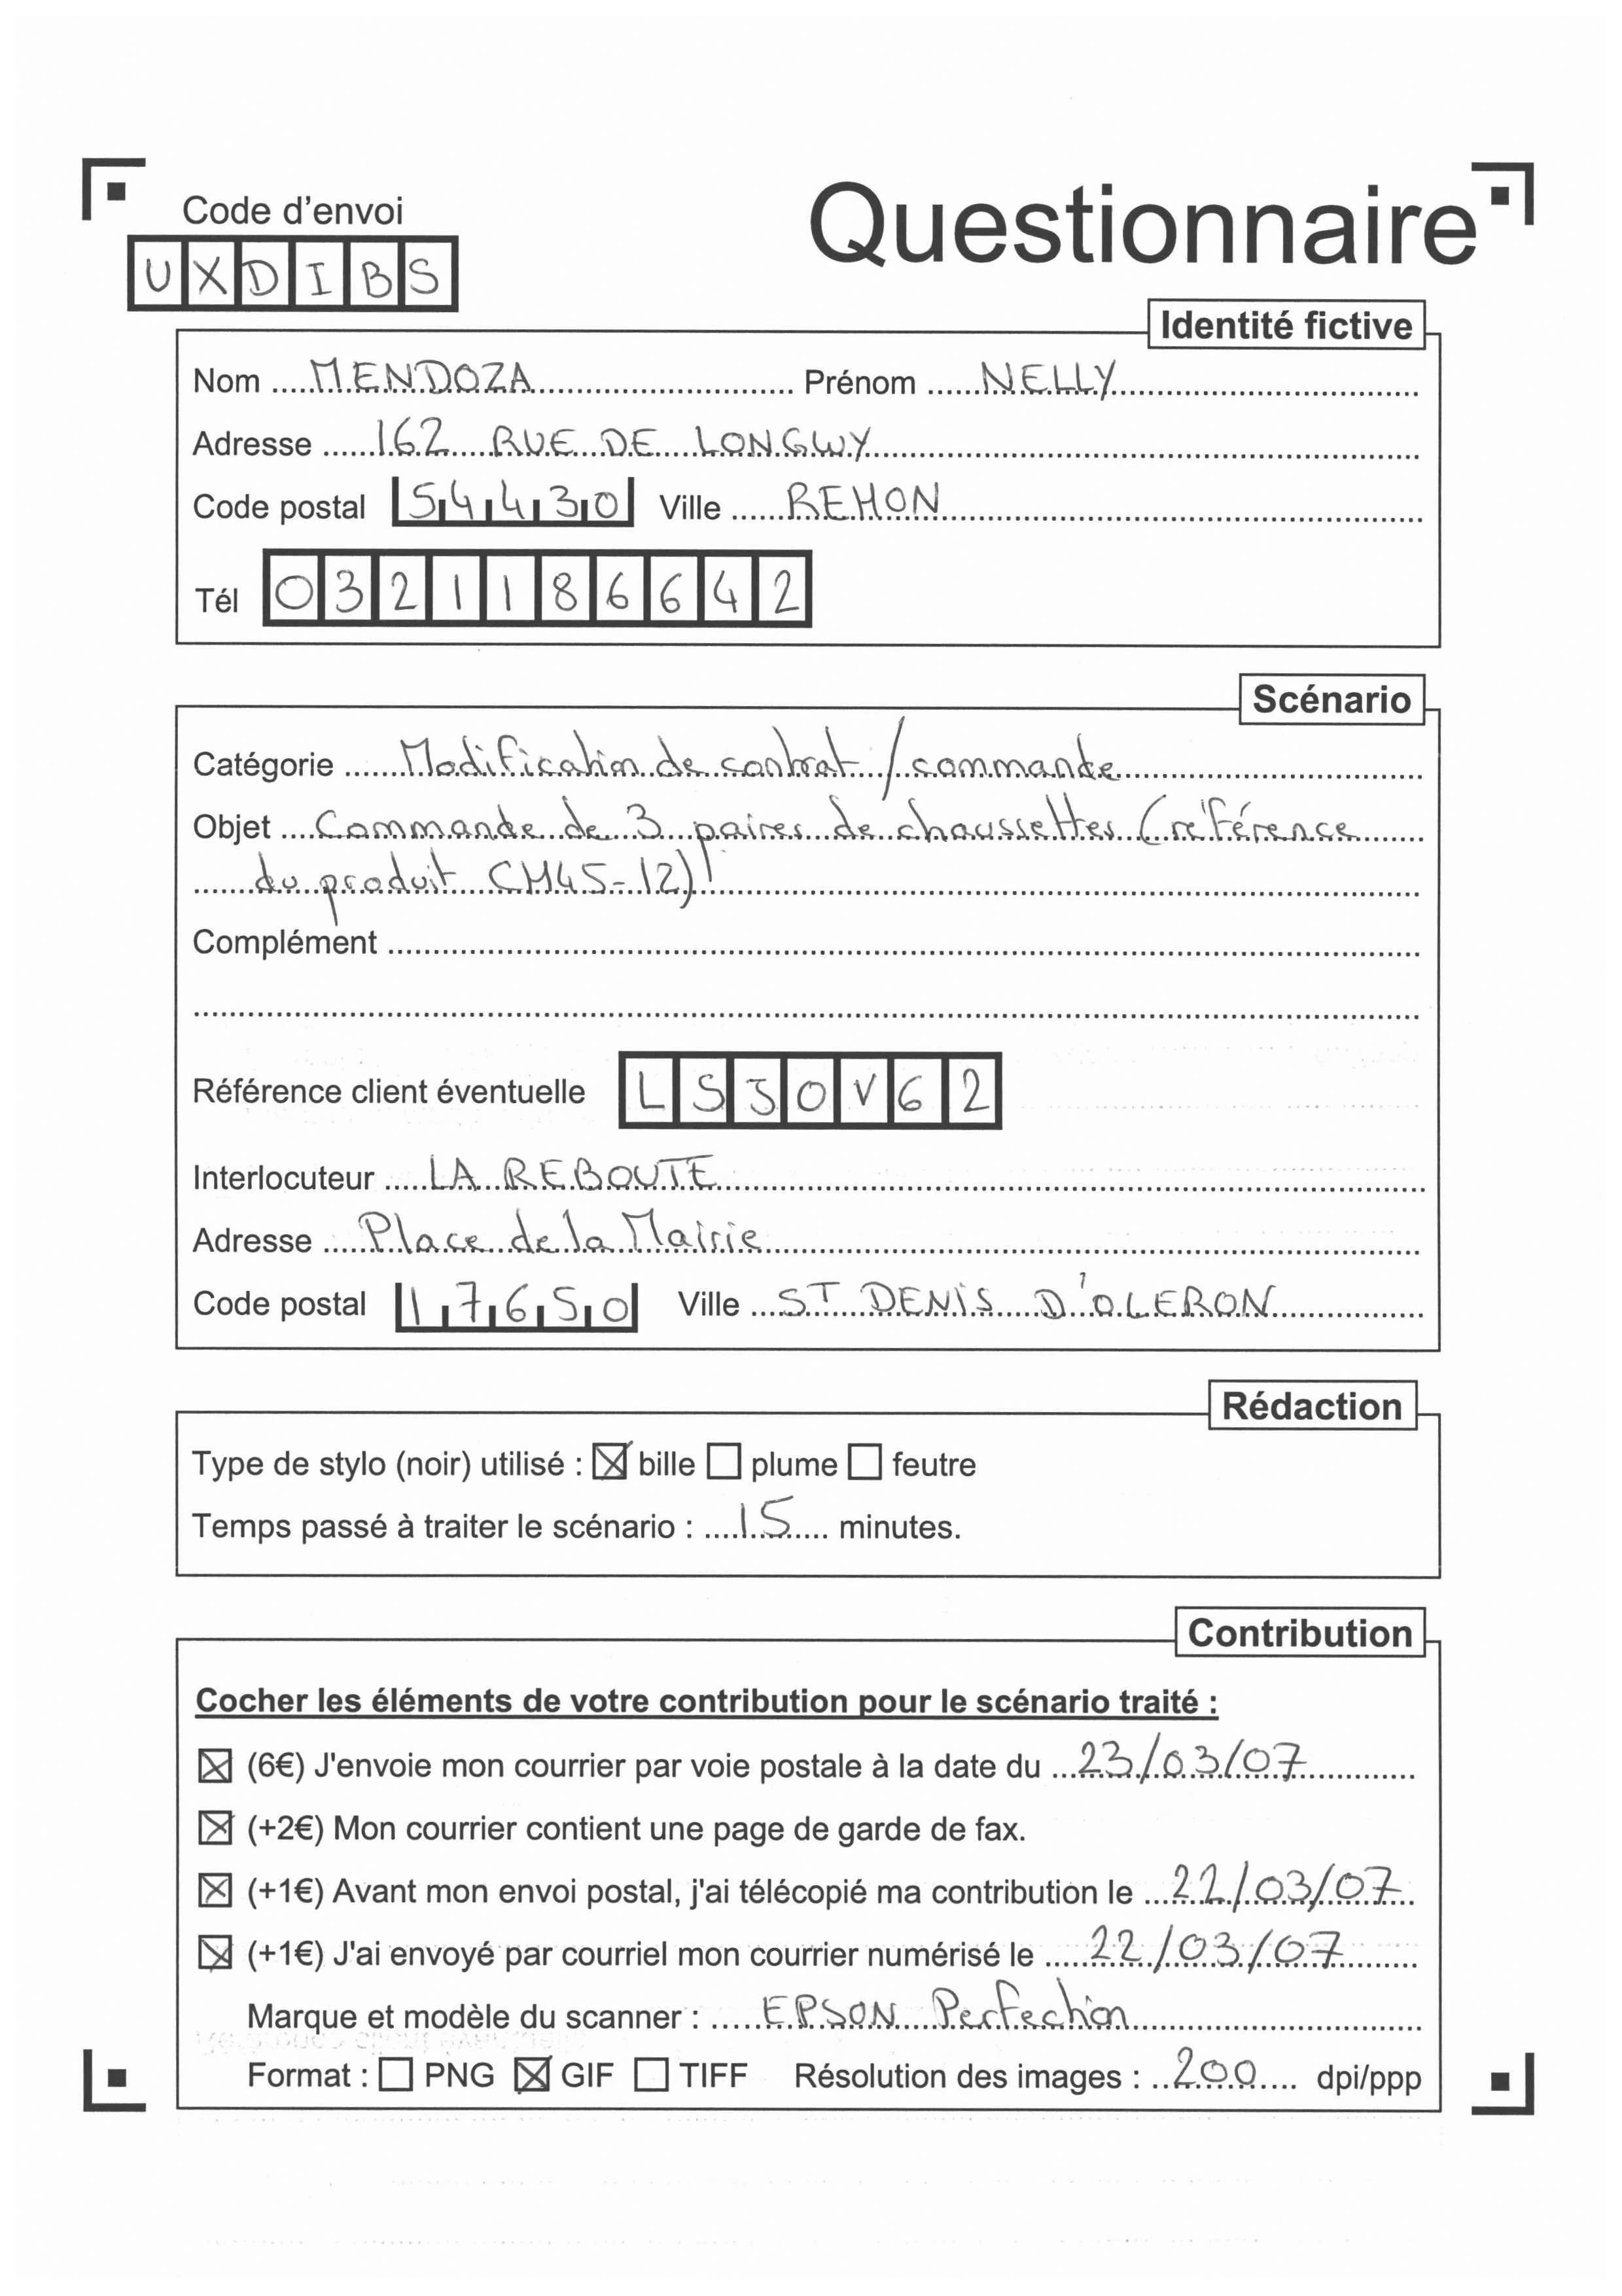 Code d'envoi
Questionnaire
UXDIBS
Identité fictive
Nom MENDOZA Prénom NELLY
Adresse 162 RUE DE LONGWY
Code postal 54430 Ville REHON
Tél 0321186642
Scénario
Catégorie Modification de contrat / commande
Objet Commande de 3 paires de chaussettes (référence
du produit CH45-12)
Complément
Référence client éventuelle LSJOV62
Interlocuteur LA REBOUTE
Adresse Place de la Mairie
Code postal 17650 Ville ST DENIS D'OLERON
Rédaction
Type de stylo (noir) utilisé : ☒ bille ☐ plume ☐ feutre
Temps passé à traiter le scénario : 15 minutes.
Contribution
Cocher les éléments de votre contribution pour le scénario traité :
☒ (6€) J'envoie mon courrier par voie postale à la date du 23/03/07
☒ (+2€) Mon courrier contient une page de garde de fax.
☒ (+1€) Avant mon envoi postal, j'ai télécopié ma contribution le 22/03/07
☒ (+1€) J'ai envoyé par courriel mon courrier numérisé le 22/03/07
Marque et modèle du scanner : EPSON Perfection
Format : ☐ PNG ☒ GIF ☐ TIFF Résolution des images : 200 dpi/ppp